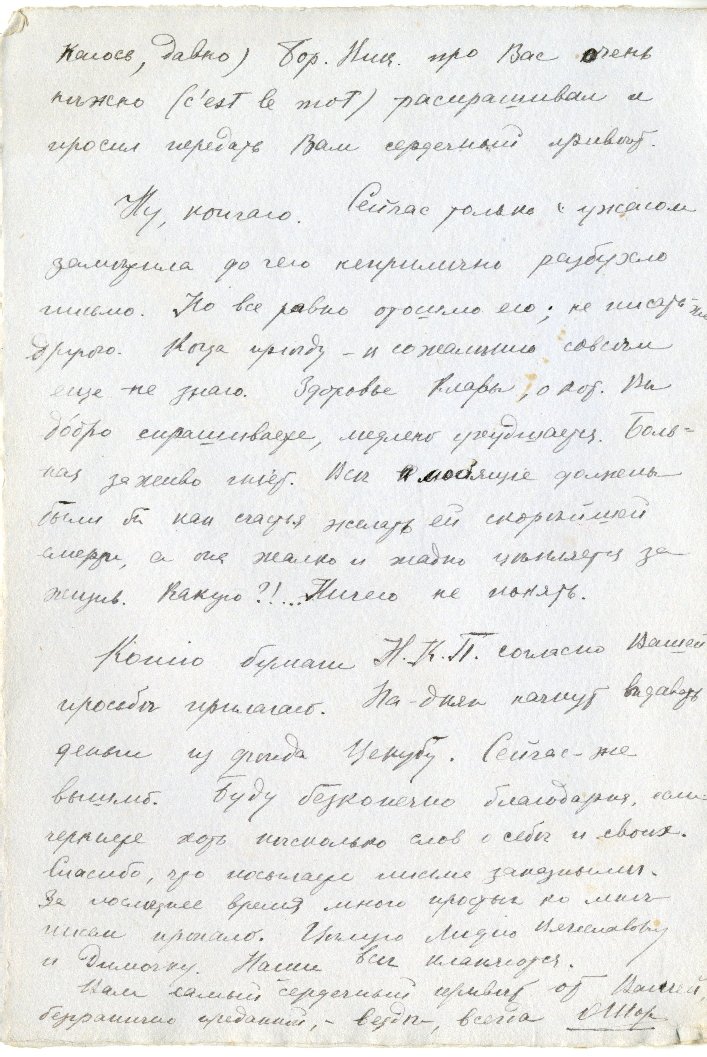 калось, давно) Бор. Ник. про Вас очень
нѣжно (c'est le mot) распрашивал и
просил передать Вам сердечный привѣт.
Ну, кончаю. Сейчас только с ужасом
замѣтила до чего неприлично разбухло
письмо. Но все равно отошлю его; не писать-же
другого. Когда приѣду – к сожалѣнию совсѣм
еще не знаю. Здоровье Клары, о кот. Вы
добро спрашиваете, медленно ухудшается. Боль=
ная заживо гніет. Всѣ любящіе должны
были бы как счастья желать ей скорѣйшей
смерти, а она жалко и жадно цѣпляется за
жизнь. Какую?!... Ничего не понять.
Копію бумаги Н.К.П. согласно Вашей
просьбы прилагаю. На-днях начнут выдавать
деньги из фонда Цекубу. Сейчас-же
вышлю. Буду безконечно благодарна, если
черкнете хоть нѣсколько слов о себѣ и своих.
Спасибо, что посылаете письма заказными.
За последнее время много простых ко мнѣ
писем пропало. Цѣлую Лидію Вячеславовну
и Димочку. Наши всѣ кланяются.
Вам самый сердечный привѣт от Вашей,
безгранично преданной, – вездѣ, всегда ОШор